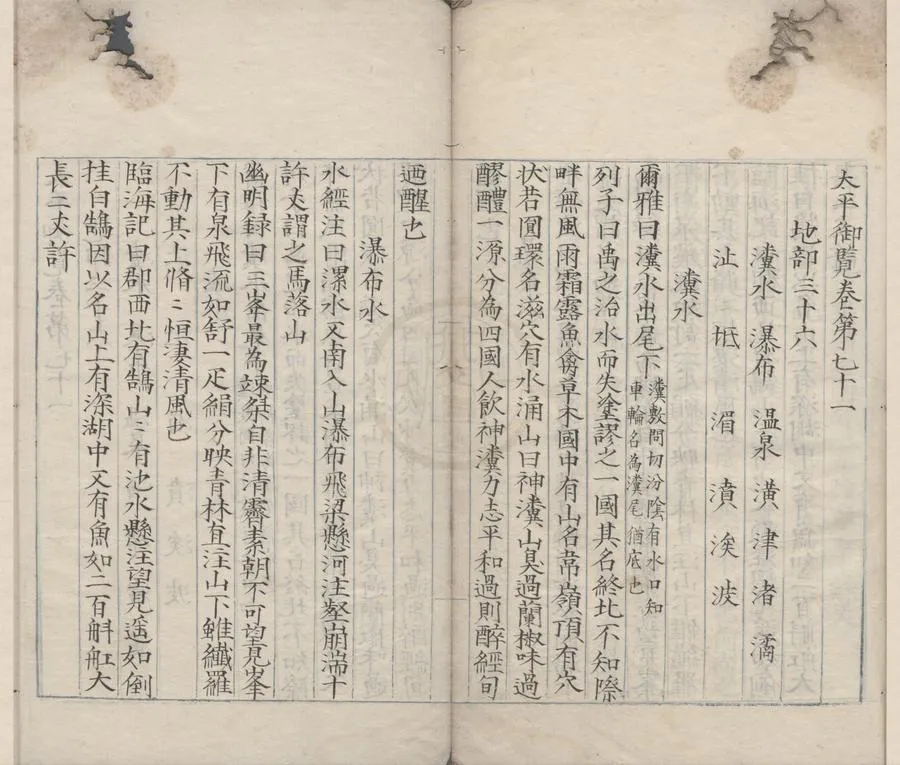 太平御覽卷第七十一
地部三十六
瀵水 瀑布 溫泉 潢 津 渚 潏
沚 坻 湄 濆 涘 波
瀵水
爾雅曰瀵水出尾下瀵敷問切汾陰有水口如
車輪名為瀵尾猶底也
列子曰禹之治水而失塗謬之一國其名終北不知際
畔無風雨霜露魚禽草木國中有山名常嶺頂有穴
狀若圓環名滋穴有水涌山曰神瀵山臭過蘭椒味過
醪醴一源分為四國人飲神瀵力志平和過則醉經旬
迺醒也
瀑布水
水經注曰漯水又南入山瀑布飛梁懸河注壑崩湍十
許丈謂之馬落山
幽明録曰三峯最為竦桀自非清霽素朝不可望見峯
下有泉飛流如舒一疋絹分映青林直注山下雖纖羅
不動其上脩〻恒淒清風也
臨海記曰郡西北有鵠山〻有池水懸注望見遥如倒
挂白鵠因以名山上有深湖中又有魚如二百斛舡大
長二丈許